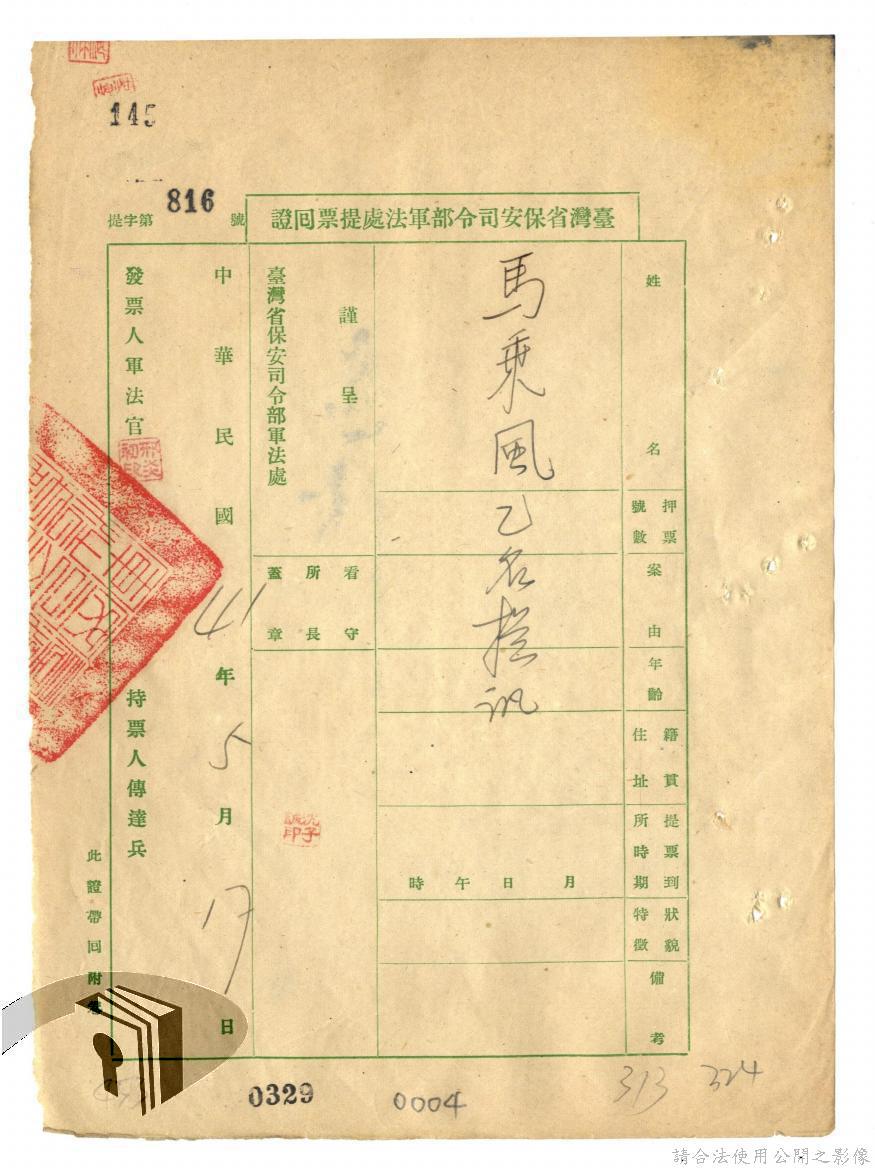 145
提字第 816 號
臺灣省保安司令部軍法處提票回證
姓名
押票號數
案由
年齡
籍貫住址
提票到所時期
狀貌特徵
備考
馬乘風乙名提訊
月 日 午 時
謹呈
臺灣省保安司令部軍法處
看守所長蓋章
中華民國 41 年 5 月 17 日
發票人軍法官
持票人傳達兵
此證帶回附卷
0329
0004
313
324
請合法使用公開之影像